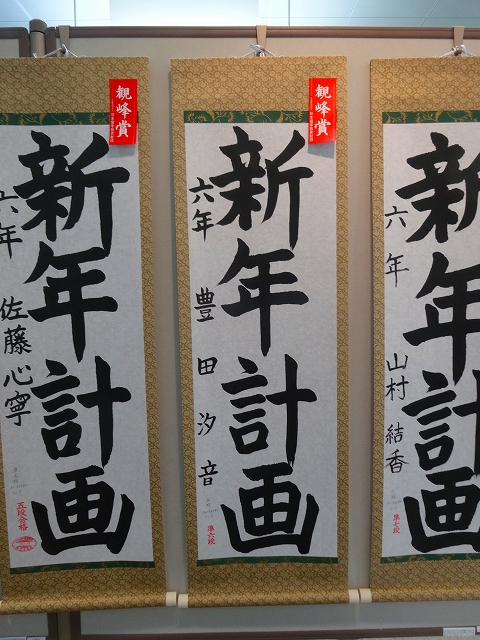 観峰賞
新年計画
六年 佐藤心寧
五段合格
観峰賞
新年計画
六年 豊田汐音
準六段
新年計画
六年 山村結香
準七段